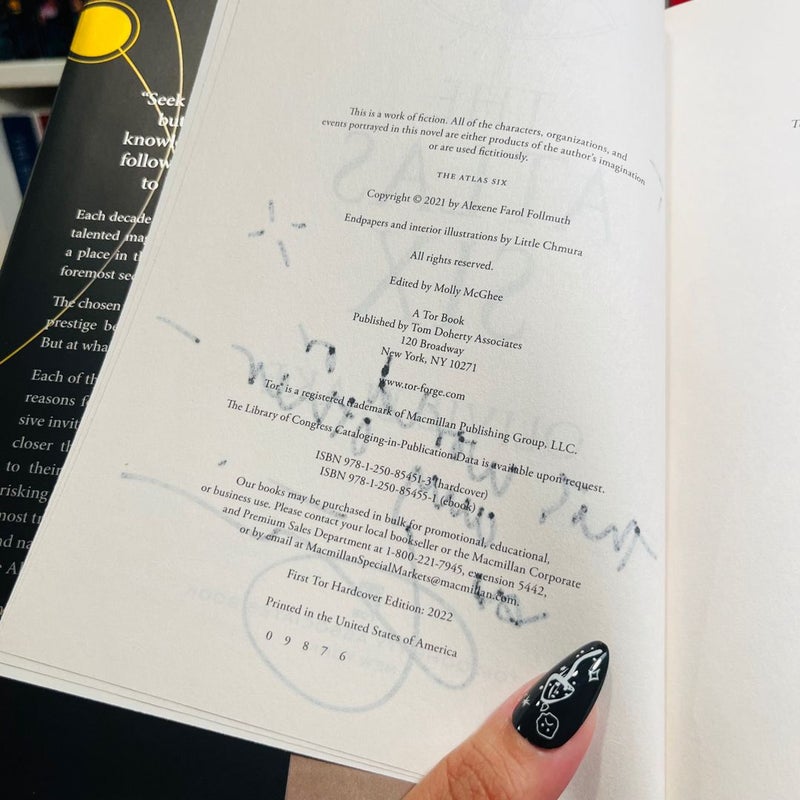 “Seek
but
knowl
follow
to
Each decade
talented mag
a place in th
foremost sec
The chosen
prestige be
But at wha
Each of th
reasons f
sive invit
closer th
to their
risking
This is a work of fiction. All of the characters, organizations, and
events portrayed in this novel are either products of the author’s imagination
or are used fictitiously.
THE ATLAS SIX
Copyright © 2021 by Alexene Farol Follmuth
Endpapers and interior illustrations by Little Chmura
All rights reserved.
Edited by Molly McGhee
A Tor Book
Published by Tom Doherty Associates
120 Broadway
New York, NY 10271
www.tor-forge.com
Tor® is a registered trademark of Macmillan Publishing Group, LLC.
The Library of Congress Cataloging-in-Publication Data is available upon request.
ISBN 978-1-250-85451-3 (hardcover)
ISBN 978-1-250-85455-1 (ebook)
Our books may be purchased in bulk for promotional, educational,
or business use. Please contact your local bookseller or the Macmillan Corporate
and Premium Sales Department at 1-800-221-7945, extension 5442,
or by email at MacmillanSpecialMarkets@macmillan.com.
First Tor Hardcover Edition: 2022
Printed in the United States of America
0 9 8 7 6